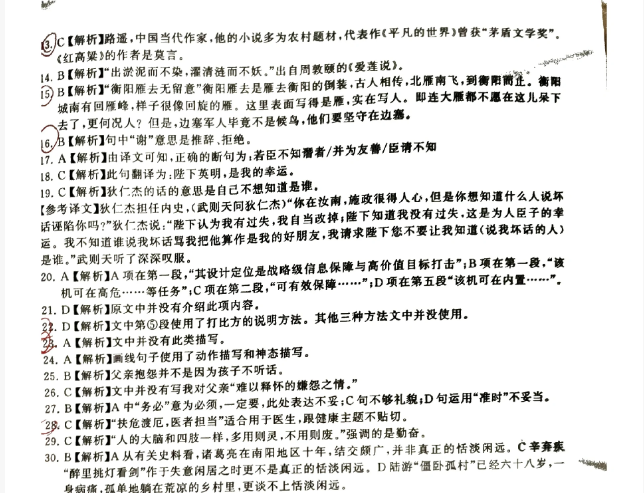 13. C【解析】路遥,中国当代作家,他的小说多为农村题材,代表作《平凡的世界》曾获“茅盾文学奖”。
《红高粱》的作者是莫言。
14. B【解析】“出淤泥而不染,濯清涟而不妖。”出自周敦颐的《爱莲说》。
15. B【解析】“衡阳雁去无留意”衡阳雁去是雁去衡阳的倒装,古人相传,北雁南飞,到衡阳而止。衡阳
城南有回雁峰,样子很像回旋的雁。这里表面写得是雁,实在写人。即连大雁都不愿在这儿呆下
去了,更何况人?但是,边塞军人毕竟不是候鸟,他们要坚守在边塞。
16. B【解析】句中“谢”意思是推辞、拒绝。
17. A【解析】由译文可知,正确的断句为:若臣不知潛者/并为友善/臣请不知
18. C【解析】此句翻译为:陛下英明,是我的幸运。
19. C【解析】狄仁杰的话的意思是自己不想知道是谁。
【参考译文】狄仁杰担任内史,(武则天问狄仁杰)“你在汝南,施政很得人心,但是你想知道什么人说坏
话诬陷你吗?”狄仁杰说:“陛下认为我有过失,我自当改掉;陛下知道我没有过失,这是为人臣子的幸
运。我不知道谁说我坏话骂我把他算作是我的好朋友,我请求陛下您不要让我知道(说我坏话的人)
是谁。”武则天听了深深叹服。
20. A【解析】A项在第一段,“其设计定位是战略级信息保障与高价值目标打击”;B项在第一段,“该
机可在高危……等任务”;C项在第二段,“可有效保障……”;D项在第五段“该机可在内置……”。
21. D【解析】原文中并没有介绍此项内容。
22. D【解析】文中第⑤段使用了打比方的说明方法。其他三种方法文中并没使用。
23. A【解析】文中并没有此类描写。
24. A【解析】画线句子使用了动作描写和神态描写。
25. B【解析】父亲抱怨并不是因为孩子不听话。
26. C【解析】文中并没有写我对父亲“难以释怀的嫌怨之情。”
27. B【解析】A中“务必”意为必须,一定要,此处表达不妥;C句不够礼貌;D句运用“准时”不妥当。
28. C【解析】“扶危渡厄,医者担当”适合用于医生,跟健康主题不贴切。
29. C【解析】“人的大脑和四肢一样,多用则灵,不用则废。”强调的是勤奋。
30. B【解析】A从有关史料看,诸葛亮在南阳地区十年,结交颇广,并非真正的恬淡闲远。C辛弃疾
“醉里挑灯看剑”作于失意闲居之时更不是真正的恬淡闲远。D陆游“僵卧孤村”已经六十八岁,一
身病痛,孤单地躺在荒凉的乡村里,更谈不上恬淡闲远。